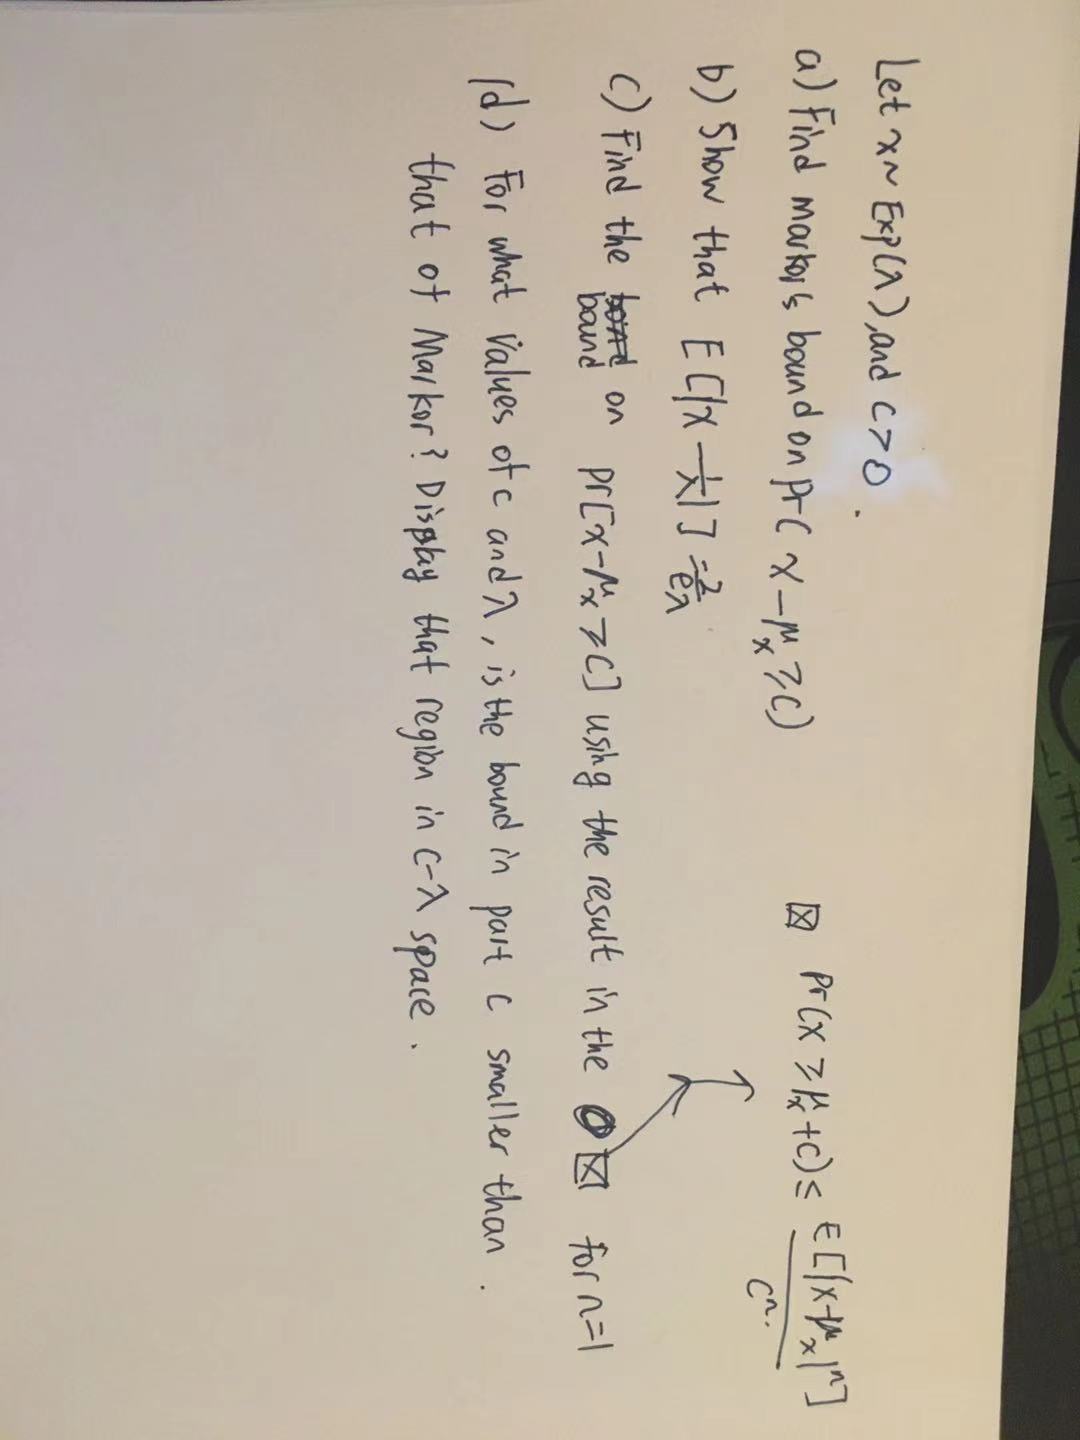 Let x ~ Exp(λ), and c > 0.
a) Find markov's bound on Pr( x - μ_x ≥ c)
⊠ Pr(x ≥ μ_x + c) ≤ E[|x-μ_x|^n] / c^n.
b) Show that E[|x - 1/λ|] = 2/eλ
c) Find the bound on Pr[x-μ_x ≥ c] using the result in the ⊠ for n=1
(d) For what values of c and λ, is the bound in part c smaller than
that of Markov? Display that region in c-λ space.